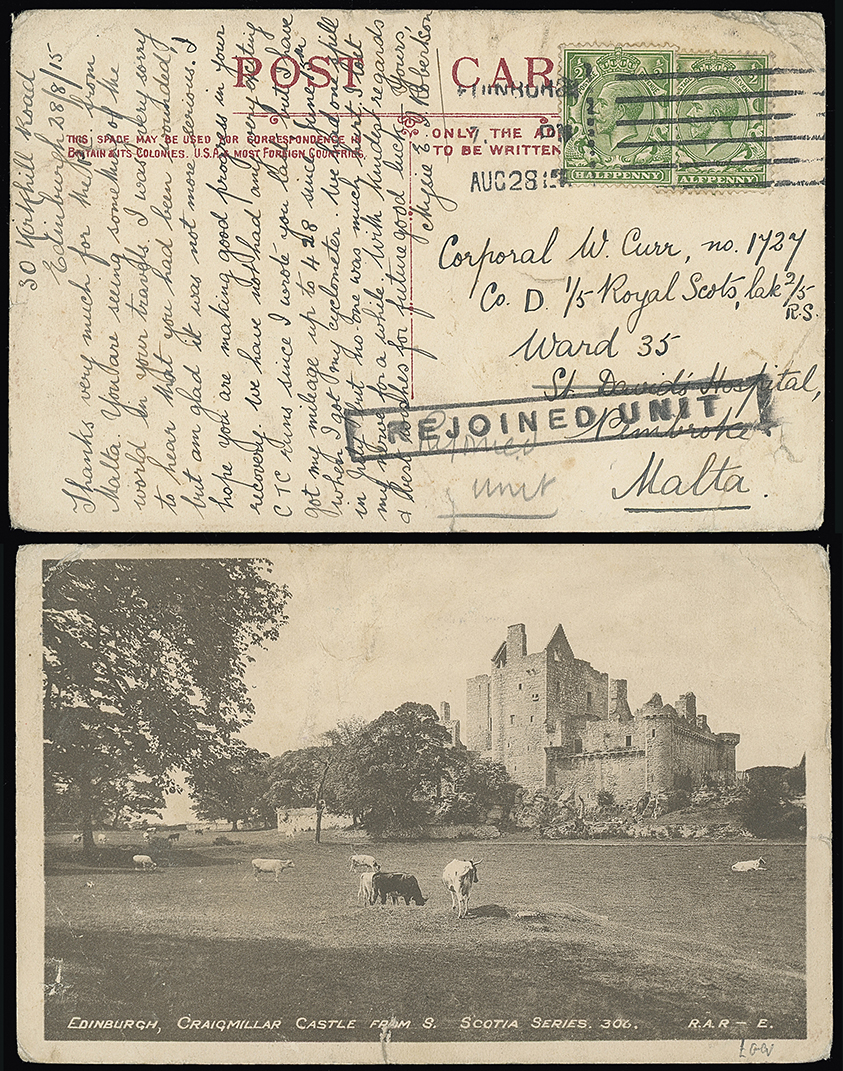 POST CAR
THIS SPACE MAY BE USED FOR CORRESPONDENCE IN
BRITAIN & ITS COLONIES. U.S.A. & MOST FOREIGN COUNTRIES.
ONLY THE AD
TO BE WRITTEN
EDINBURGH
AUG 28 15
HALFPENNY
HALFPENNY
30 Kirkhill Road
Edinburgh 28/8/15
Thanks very much for the from
Malta. You are seeing something of the
world in your travels. I was very sorry
to hear that you had been wounded,
but am glad it was not more serious. I
hope you are making good progress in your
recovery. We have not had any very exciting
CTC runs since I wrote you last but I have
got my mileage up to 428 since June
when I got my cyclometer. We had one spill
in July but no one was much hurt. I lost
my nerve for a while. With kindest regards
& best wishes for future good luck. Yours,
E. S. Roberton
Corporal W. Curr, no. 1727
Co. D. 1/5 Royal Scots, late 2/5
R.S.
Ward 35
St. David's Hospital,
Pembroke.
Malta.
REJOINED UNIT
Rejoined
Unit
EDINBURGH, CRAIGMILLAR CASTLE FROM S. SCOTIA SERIES. 306. R.A.R – E.